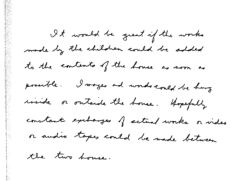 It would be great if the works
made by the children could be added
to the contents of the house as soon as
possible. Images and words could be hung
inside or outside the house. Hopefully
constant exchanges of actual works or video
or audio tapes could be made between
the two house.